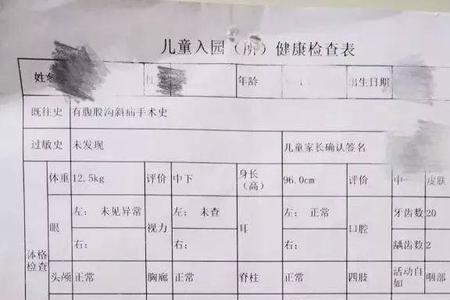 儿童入园（所）健康检查表
姓名 年龄 出生日期
既往史 有腹股沟斜疝手术史
过敏史 未发现 儿童家长确认签名
体重 12.5kg 评价 中下 身长（高） 96.0cm 评价 中一 皮肤
体格检查 眼 左： 未见异常 视力 左： 未查 耳 左： 正常 口腔 牙齿数 20
右： 右： 右： 龋齿数 2
头颅 正常 胸廓 正常 脊柱 正常 四肢 活动自如 咽部